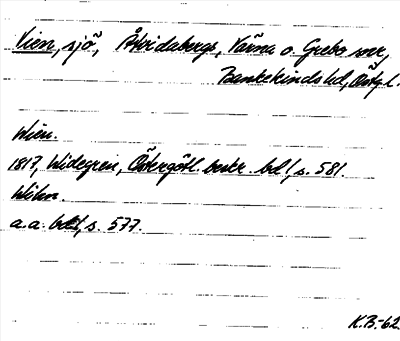 Vien, sjö, Åtvidabergs, Värna o. Grebo snr,
Bankekinds hd, Östg.l.
Wien.
1817, Widegren, Östergötl. beskr. bd 1, s. 581.
Wihn.
a.a. bd 1, s. 577.
K.B.-62.